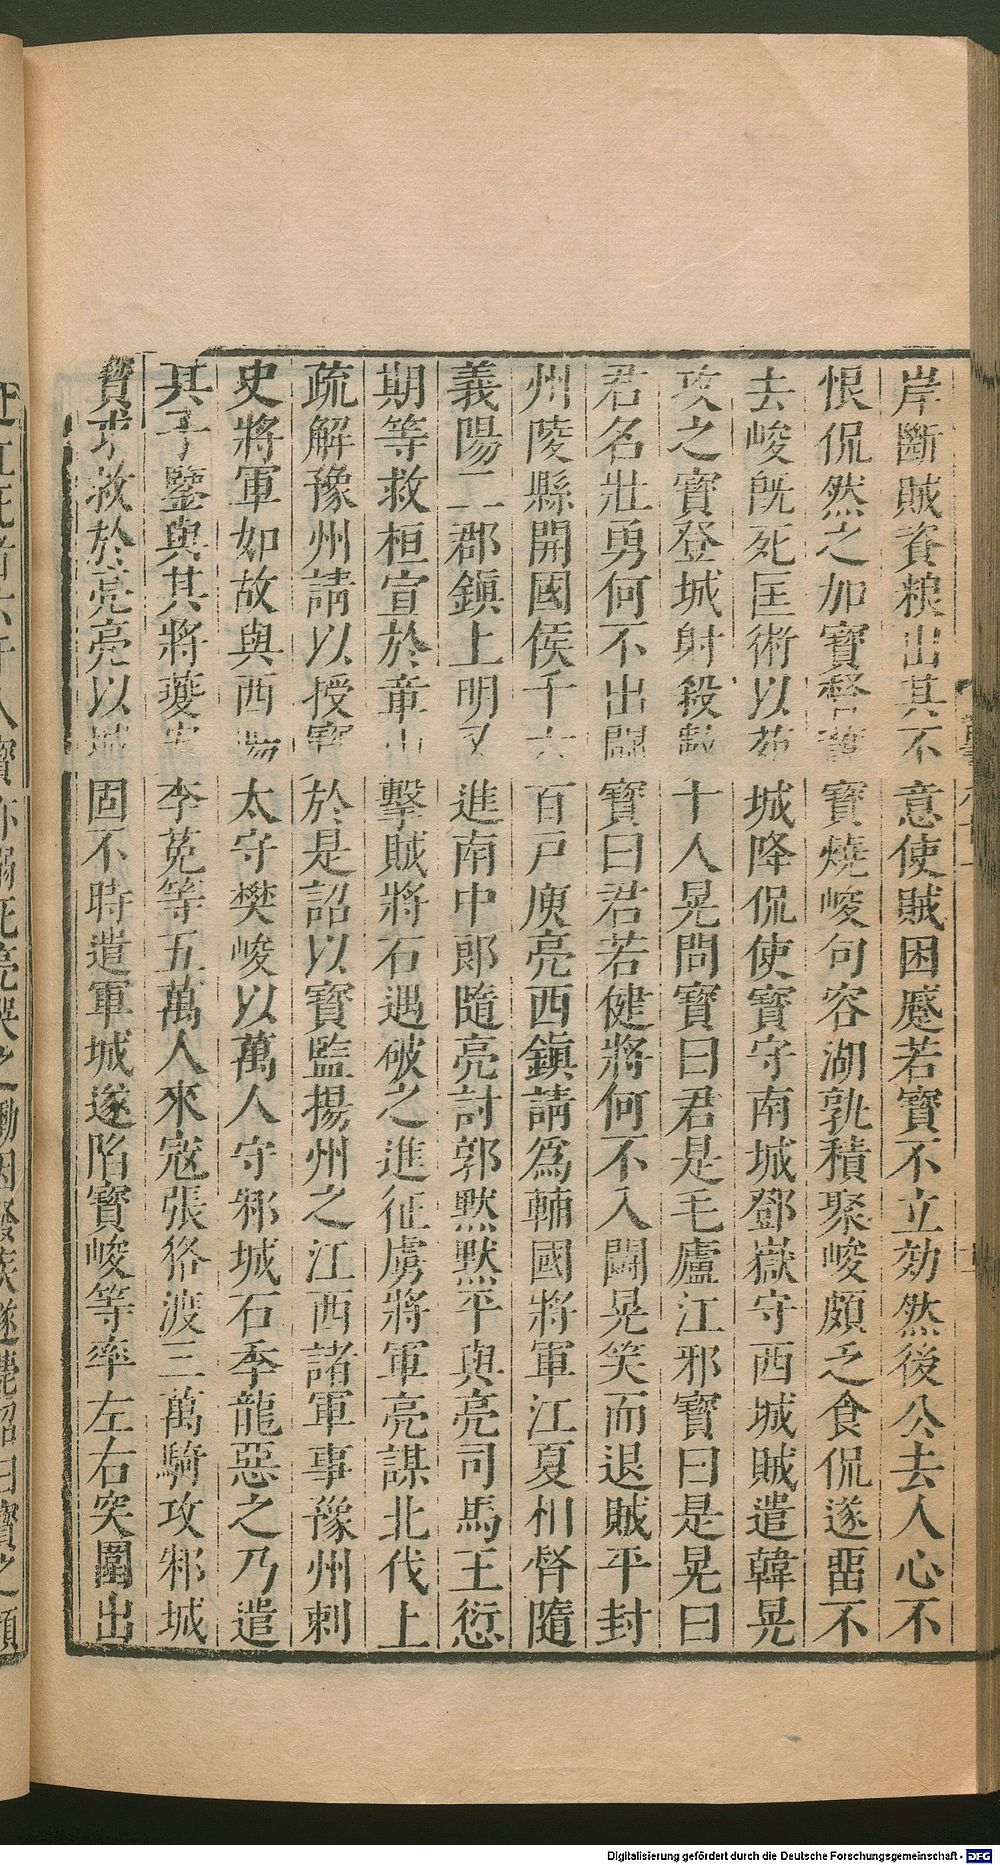 岸斷賊資粮出其不意使賊困蹙若寶不立効然後公去人心不
恨侃然之加寶督護寶燒峻句容湖孰積聚峻頗乏食侃遂畱不
去峻旣死匡術以苑城降侃使寶守南城鄧嶽守西城賊遣韓晃
攻之寶登城射殺數十人晃問寶曰君是毛廬江邪寶曰是晃曰
君名壯勇何不出鬬寶曰君若健將何不入鬬晃笑而退賊平封
州陵縣開國侯千六百戸庾亮西鎮請爲輔國將軍江夏相督隨
義陽二郡鎮上明又進南中郎隨亮討郭默默平與亮司馬王愆
期等救桓宣於章山擊賊將石遇破之進征虜將軍亮謀北伐上
疏解豫州請以授寶於是詔以寶監揚州之江西諸軍事豫州刺
史將軍如故與西陽太守樊峻以萬人守邾城石季龍惡之乃遣
其子鑒與其將夔安李菟等五萬人來寇張狢渡二萬騎攻邾城
寶求救於亮亮以城固不時遣軍城遂陷寶峻等率左右突圍出
赴江死者六千人寶亦溺死亮哭之慟因發疾遂薨詔曰寶之傾
Digitalisierung gefördert durch die Deutsche Forschungsgemeinschaft - DFG